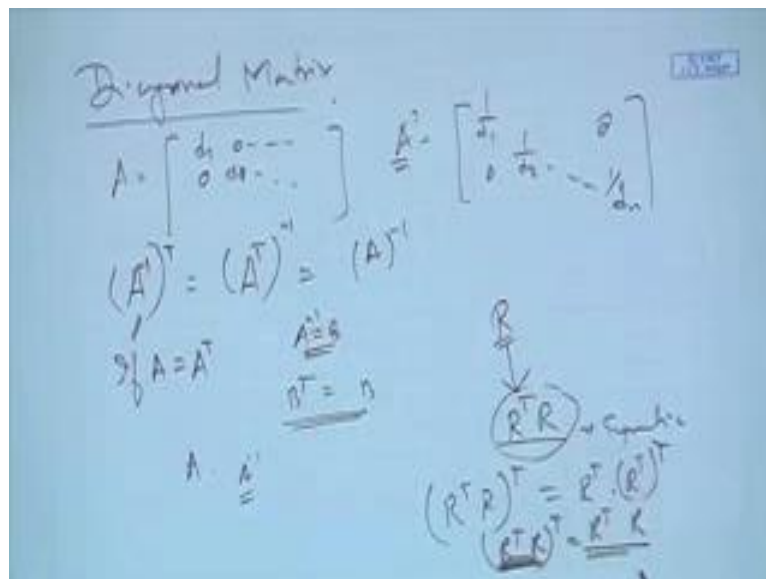 Diagonal Matrix
A = [ d₁ 0 - - - ]   A⁻¹ = [ 1/d₁ 0 ]
[ 0 d₂ - . . ]   [ 0 1/d₂ . . . 1/dₙ ]
(A⁻¹)ᵀ = (Aᵀ)⁻¹ = (A)⁻¹
If A = Aᵀ   A⁻¹ = B
Bᵀ = B
A   A⁻¹
R
RᵀR →
(RᵀR)ᵀ = Rᵀ.(Rᵀ)ᵀ
(RᵀR)ᵀ = RᵀR